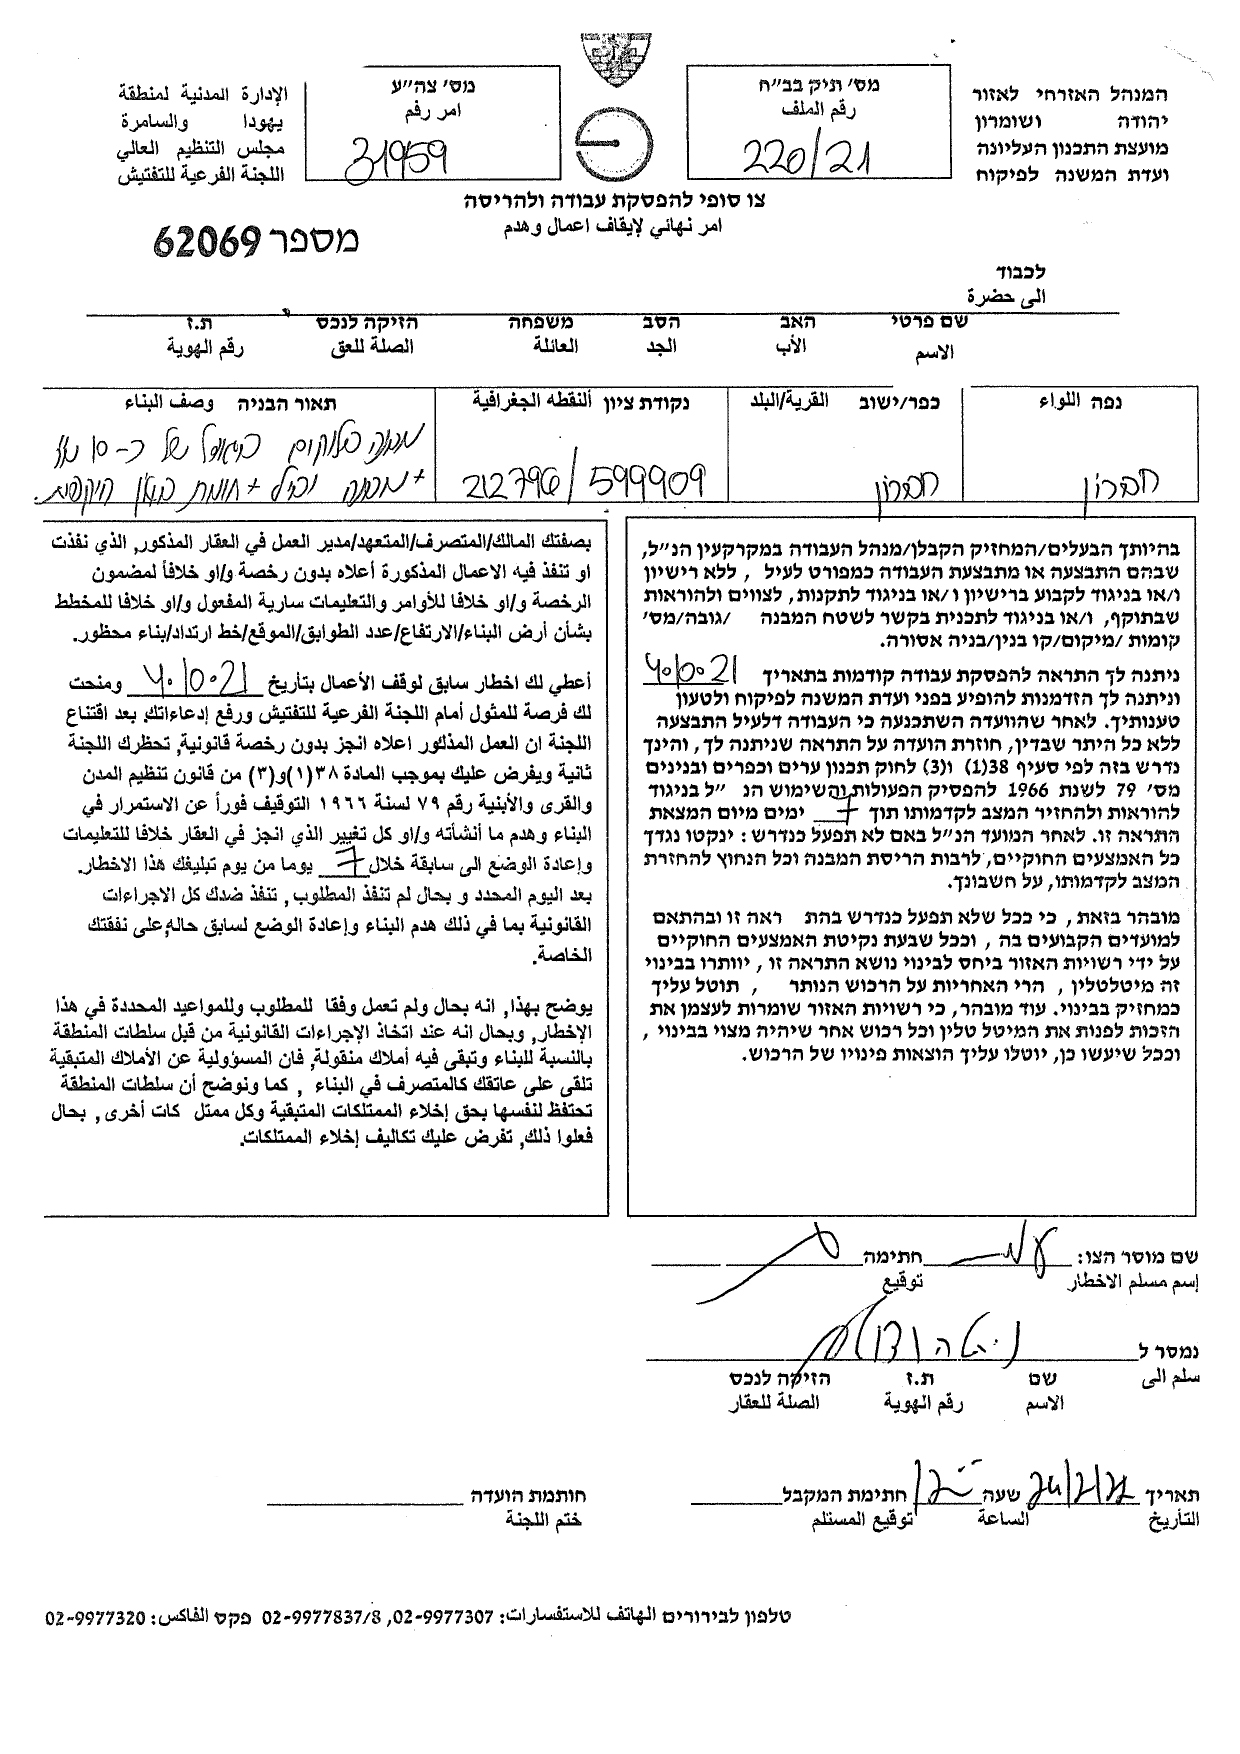 המנהל האזרחי לאזור
יהודה ושומרון
מועצת התכנון העליונה
ועדת המשנה לפיקוח
מס׳ תיק בב״ח
رقم الملف
220/21
מס׳ צה״ע
امر رقم
31959
الإدارة المدنية لمنطقة
يهودا والسامرة
مجلس التنظيم العالي
اللجنة الفرعية للتفتيش
צו סופי להפסקת עבודה ולהריסה
امر نهائي لإيقاف اعمال وهدم
מספר 62069
לכבוד
الى حضرة
שם פרטי האב הסב משפחה הזיקה לנכס ת.ז
الاسم الأب الجد العائلة الصلة للعق رقم الهوية
נפה اللواء
חברון
כפר/ישוב القرية/البلد
חברון
נקודת ציון ألنقطه الجغرافية
212796/599909
תאור הבניה وصف البناء
מבנה בלוקים בגודל של כ-10 מ״ר
+ מבנה וביל + חומת היקפית.
בהיותך הבעלים/המחזיק הקבלן/מנהל העבודה במקרקעין הנ״ל,
שבהם התבצעה או מתבצעת העבודה כמפורט לעיל , ללא רישיון
ו/או בניגוד לקבוע ברישיון ו/או בניגוד לתקנות, לצווים ולהוראות
שבתוקף, ו/או בניגוד לתכנית בקשר לשטח המבנה /גובה/מס׳
קומות /מיקום/קו בנין/בניה אסורה.
ניתנה לך התראה להפסקת עבודה קודמות בתאריך
וניתנה לך הזדמנות להופיע בפני ועדת המשנה לפיקוח ולטעון
טענותיך. לאחר שהוועדה השתכנעה כי העבודה דלעיל התבצעה
ללא כל היתר שבדין, חוזרת הועדה על התראה שניתנה לך, והינך
נדרש בזה לפי סעיף 38(1) ו(3) לחוק תכנון ערים וכפרים ובנינים
מס׳ 79 לשנת 1966 להפסיק הפעולות והשימוש הנ ״ל בניגוד
להוראות ולהחזיר המצב לקדמותו תוך 7 ימים מיום המצאת
התראה זו. לאחר המועד הנ״ל באם לא תפעל כנדרש: ינקטו נגדך
כל האמצעים החוקיים, לרבות הריסת המבנה וכל הנחוץ להחזרת
המצב לקדמותו, על חשבונך.
מובהר בזאת, כי ככל שלא תפעל כנדרש בהת ראה זו ובהתאם
למועדים הקבועים בה , וככל שבעת נקיטת האמצעים החוקיים
על ידי רשויות האזור ביחס לבינוי נושא התראה זו , יוותרו בבינוי
זה מיטלטלין , הרי האחריות על הרכוש הנותר , תוטל עליך
כמחזיק בבינוי. עוד מובהר, כי רשויות האזור שומרות לעצמן את
הזכות לפנות את המיטל טלין וכל רכוש אחר שיהיה מצוי בבינוי ,
וככל שיעשו כן, יוטלו עליך הוצאות פינויו של הרכוש.
بصفتك المالك/المتصرف/المتعهد/مدير العمل في العقار المذكور, الذي نفذت
او تنفذ فيه الاعمال المذكورة أعلاه بدون رخصة و/او خلافاً لمضمون
الرخصة و/او خلافا للأوامر والتعليمات سارية المفعول و/او خلافا للمخطط
بشأن أرض البناء/الارتفاع/عدد الطوابق/الموقع/خط ارتداد/بناء محظور.
أعطي لك اخطار سابق لوقف الأعمال بتأريخ ومنحت
لك فرصة للمثول أمام اللجنة الفرعية للتفتيش ورفع إدعاءاتك, بعد اقتناع
اللجنة ان العمل المذكور اعلاه انجز بدون رخصة قانونية, تحظرك اللجنة
ثانية ويفرض عليك بموجب المادة ٣٨(١)و(٣) من قانون تنظيم المدن
والقرى والأبنية رقم ٧٩ لسنة ١٩٦٦ التوقيف فوراً عن الاستمرار في
البناء وهدم ما أنشأته و/او كل تغيير الذي انجز في العقار خلافا للتعليمات
وإعادة الوضع الى سابقة خلال 7 يوما من يوم تبليغك هذا الاخطار.
بعد اليوم المحدد و بحال لم تنفذ المطلوب, تنفذ ضدك كل الاجراءات
القانونية بما في ذلك هدم البناء وإعادة الوضع لسابق حاله, على نفقتك
الخاصة.
يوضح بهذا, انه بحال ولم تعمل وفقا للمطلوب وللمواعيد المحددة في هذا
الإخطار, وبحال انه عند اتخاذ الإجراءات القانونية من قبل سلطات المنطقة
بالنسبة للبناء وتبقى فيه أملاك منقولة, فان المسؤولية عن الأملاك المتبقية
تلقى على عاتقك كالمتصرف في البناء , كما ونوضح أن سلطات المنطقة
تحتفظ لنفسها بحق إخلاء الممتلكات المتبقية وكل ممتل كات أخرى, بحال
فعلوا ذلك, تفرض عليك تكاليف إخلاء الممتلكات.
שם מוסר הצו: חתימה
إسم مسلم الاخطار توقيع
נמסר ל
سلم الى
שם ת.ז הזיקה לנכס
الاسم رقم الهوية الصلة للعقار
תאריך 24/2/22 שעה חתימת המקבל
التأريخ الساعة توقيع المستلم
חותמת הועדה
ختم اللجنة
טלפון לבירורים الهاتف للاستفسارات: 02-9977307, 02-9977837/8 פקס الفاكس: 02-9977320